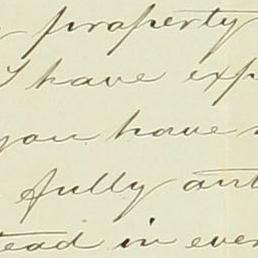 property
I have exp
you have
fully aut
tead in ever